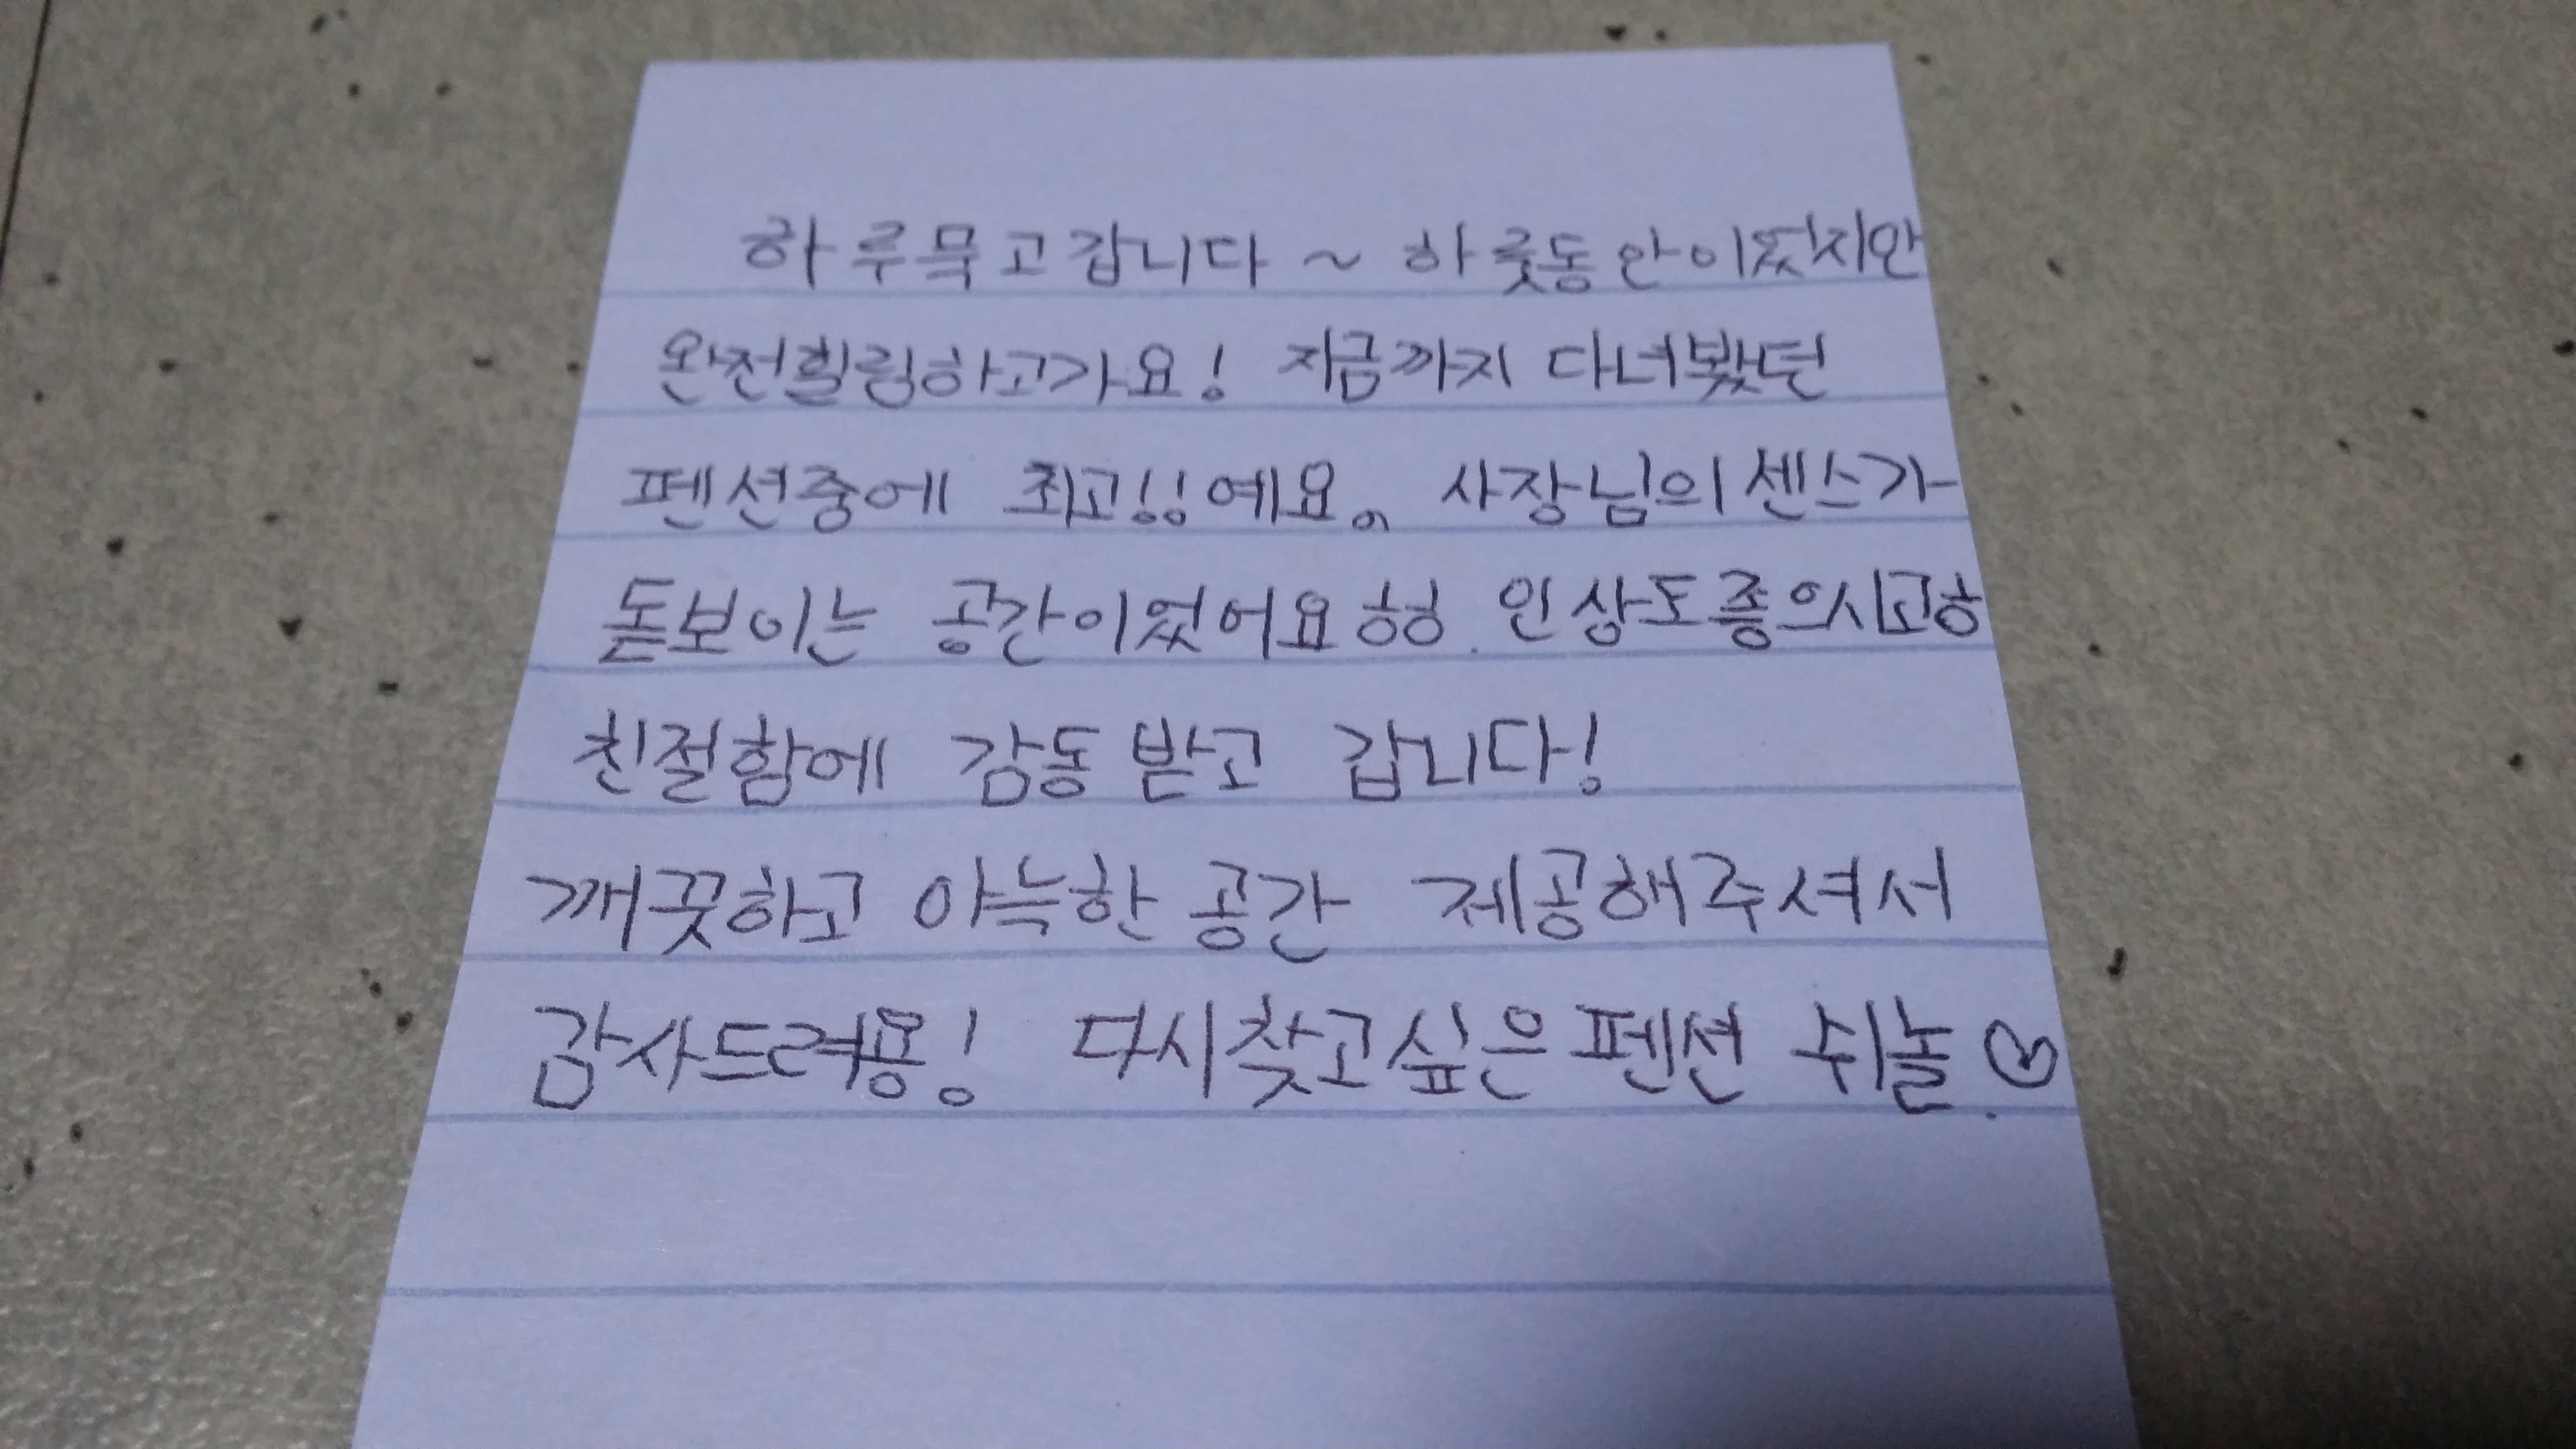 하루묵고갑니다 ~ 하룻동안이었지만
완전힐링하고가요! 지금까지 다녀봤던
펜션중에 최고!!예요. 사장님의 센스가
돋보이는 공간이었어요ㅎㅎ. 인상도좋으시고ㅎ
친절함에 감동 받고 갑니다!
깨끗하고 아늑한 공간 제공해주셔서
감사드려용! 다시찾고싶은 펜션 쉬놀♡